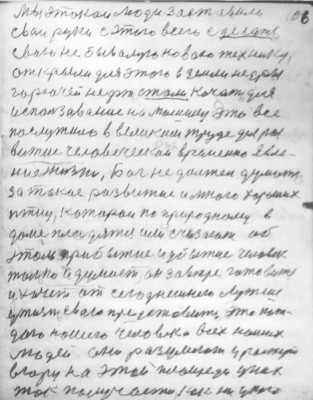 106
мы этакаи люди заставили
сваи руки с этого всего сделать
свою не бывалую новаю технику,
аткрыли для этого в земли недры
горючей нефти, стали качать для
использавание на машину Это все
паслужило в великам труде для раз
витие человеческай временна явле-
ние жизни, Бог не должен думать
за такое развитие и много хороших
птиц, катараи по природнаму в
доме пладятся или сказать об
этом прибытие и убытие человек
только и думает, он завтре готовить
и хочет от сегоднешнего лутше
у жизни свою предоставить, Это каж-
дого нашего человека всех наших
людей они разумеют и растут
вгору на этой площади у них
так получается